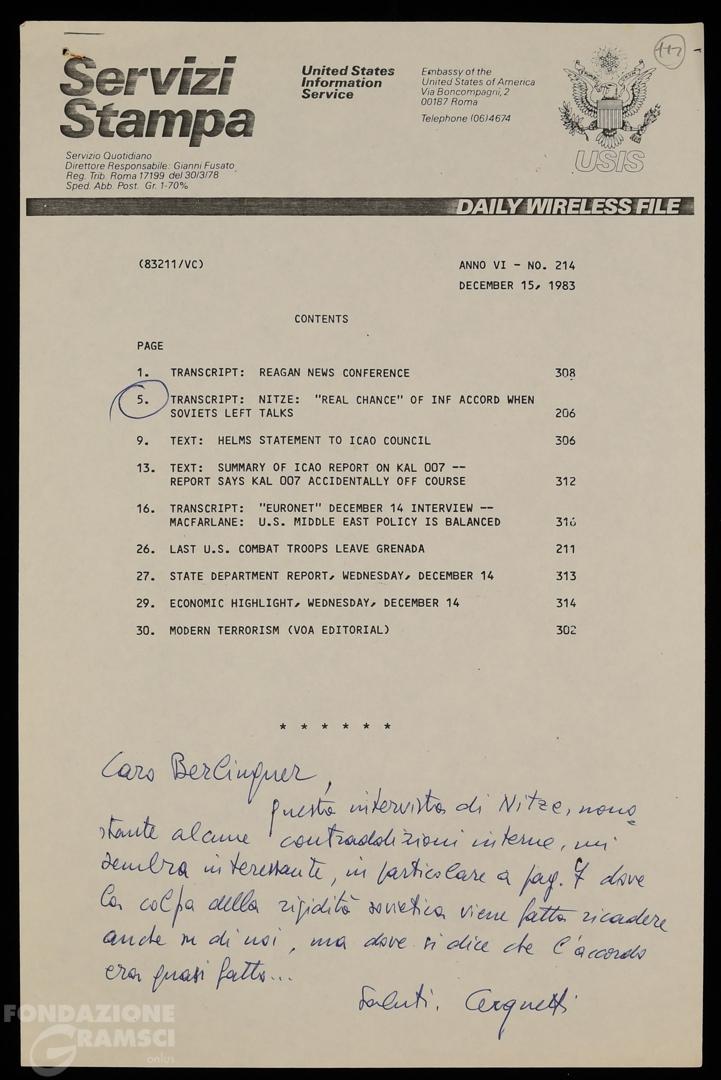 Servizi
Stampa
Servizio Quotidiano
Direttore Responsabile: Gianni Fusato
Reg. Trib. Roma 17199 del 30/3/78
Sped. Abb. Post. Gr. 1-70%
United States
Information
Service
Embassy of the
United States of America
Via Boncompagni, 2
00187 Roma
Telephone (06)4674
USIS
DAILY WIRELESS FILE
(83211/VC)
ANNO VI - NO. 214
DECEMBER 15, 1983
CONTENTS
PAGE
1. TRANSCRIPT: REAGAN NEWS CONFERENCE 308
5. TRANSCRIPT: NITZE: "REAL CHANCE" OF INF ACCORD WHEN
SOVIETS LEFT TALKS 206
9. TEXT: HELMS STATEMENT TO ICAO COUNCIL 306
13. TEXT: SUMMARY OF ICAO REPORT ON KAL 007 --
REPORT SAYS KAL 007 ACCIDENTALLY OFF COURSE 312
16. TRANSCRIPT: "EURONET" DECEMBER 14 INTERVIEW --
MACFARLANE: U.S. MIDDLE EAST POLICY IS BALANCED 316
26. LAST U.S. COMBAT TROOPS LEAVE GRENADA 211
27. STATE DEPARTMENT REPORT, WEDNESDAY, DECEMBER 14 313
29. ECONOMIC HIGHLIGHT, WEDNESDAY, DECEMBER 14 314
30. MODERN TERRORISM (VOA EDITORIAL) 302
* * * * * *
Caro Berlinguer,
questa intervista di Nitze, nono
stante alcune contraddizioni interne, mi
sembra interessante, in particolare a pag. 7 dove
la colpa della rigidità sovietica viene fatta ricadere
anche su di noi, ma dove si dice che l'accordo
era quasi fatto...
Saluti. Cerquetti
FONDAZIONE
GRAMSCI
onlus